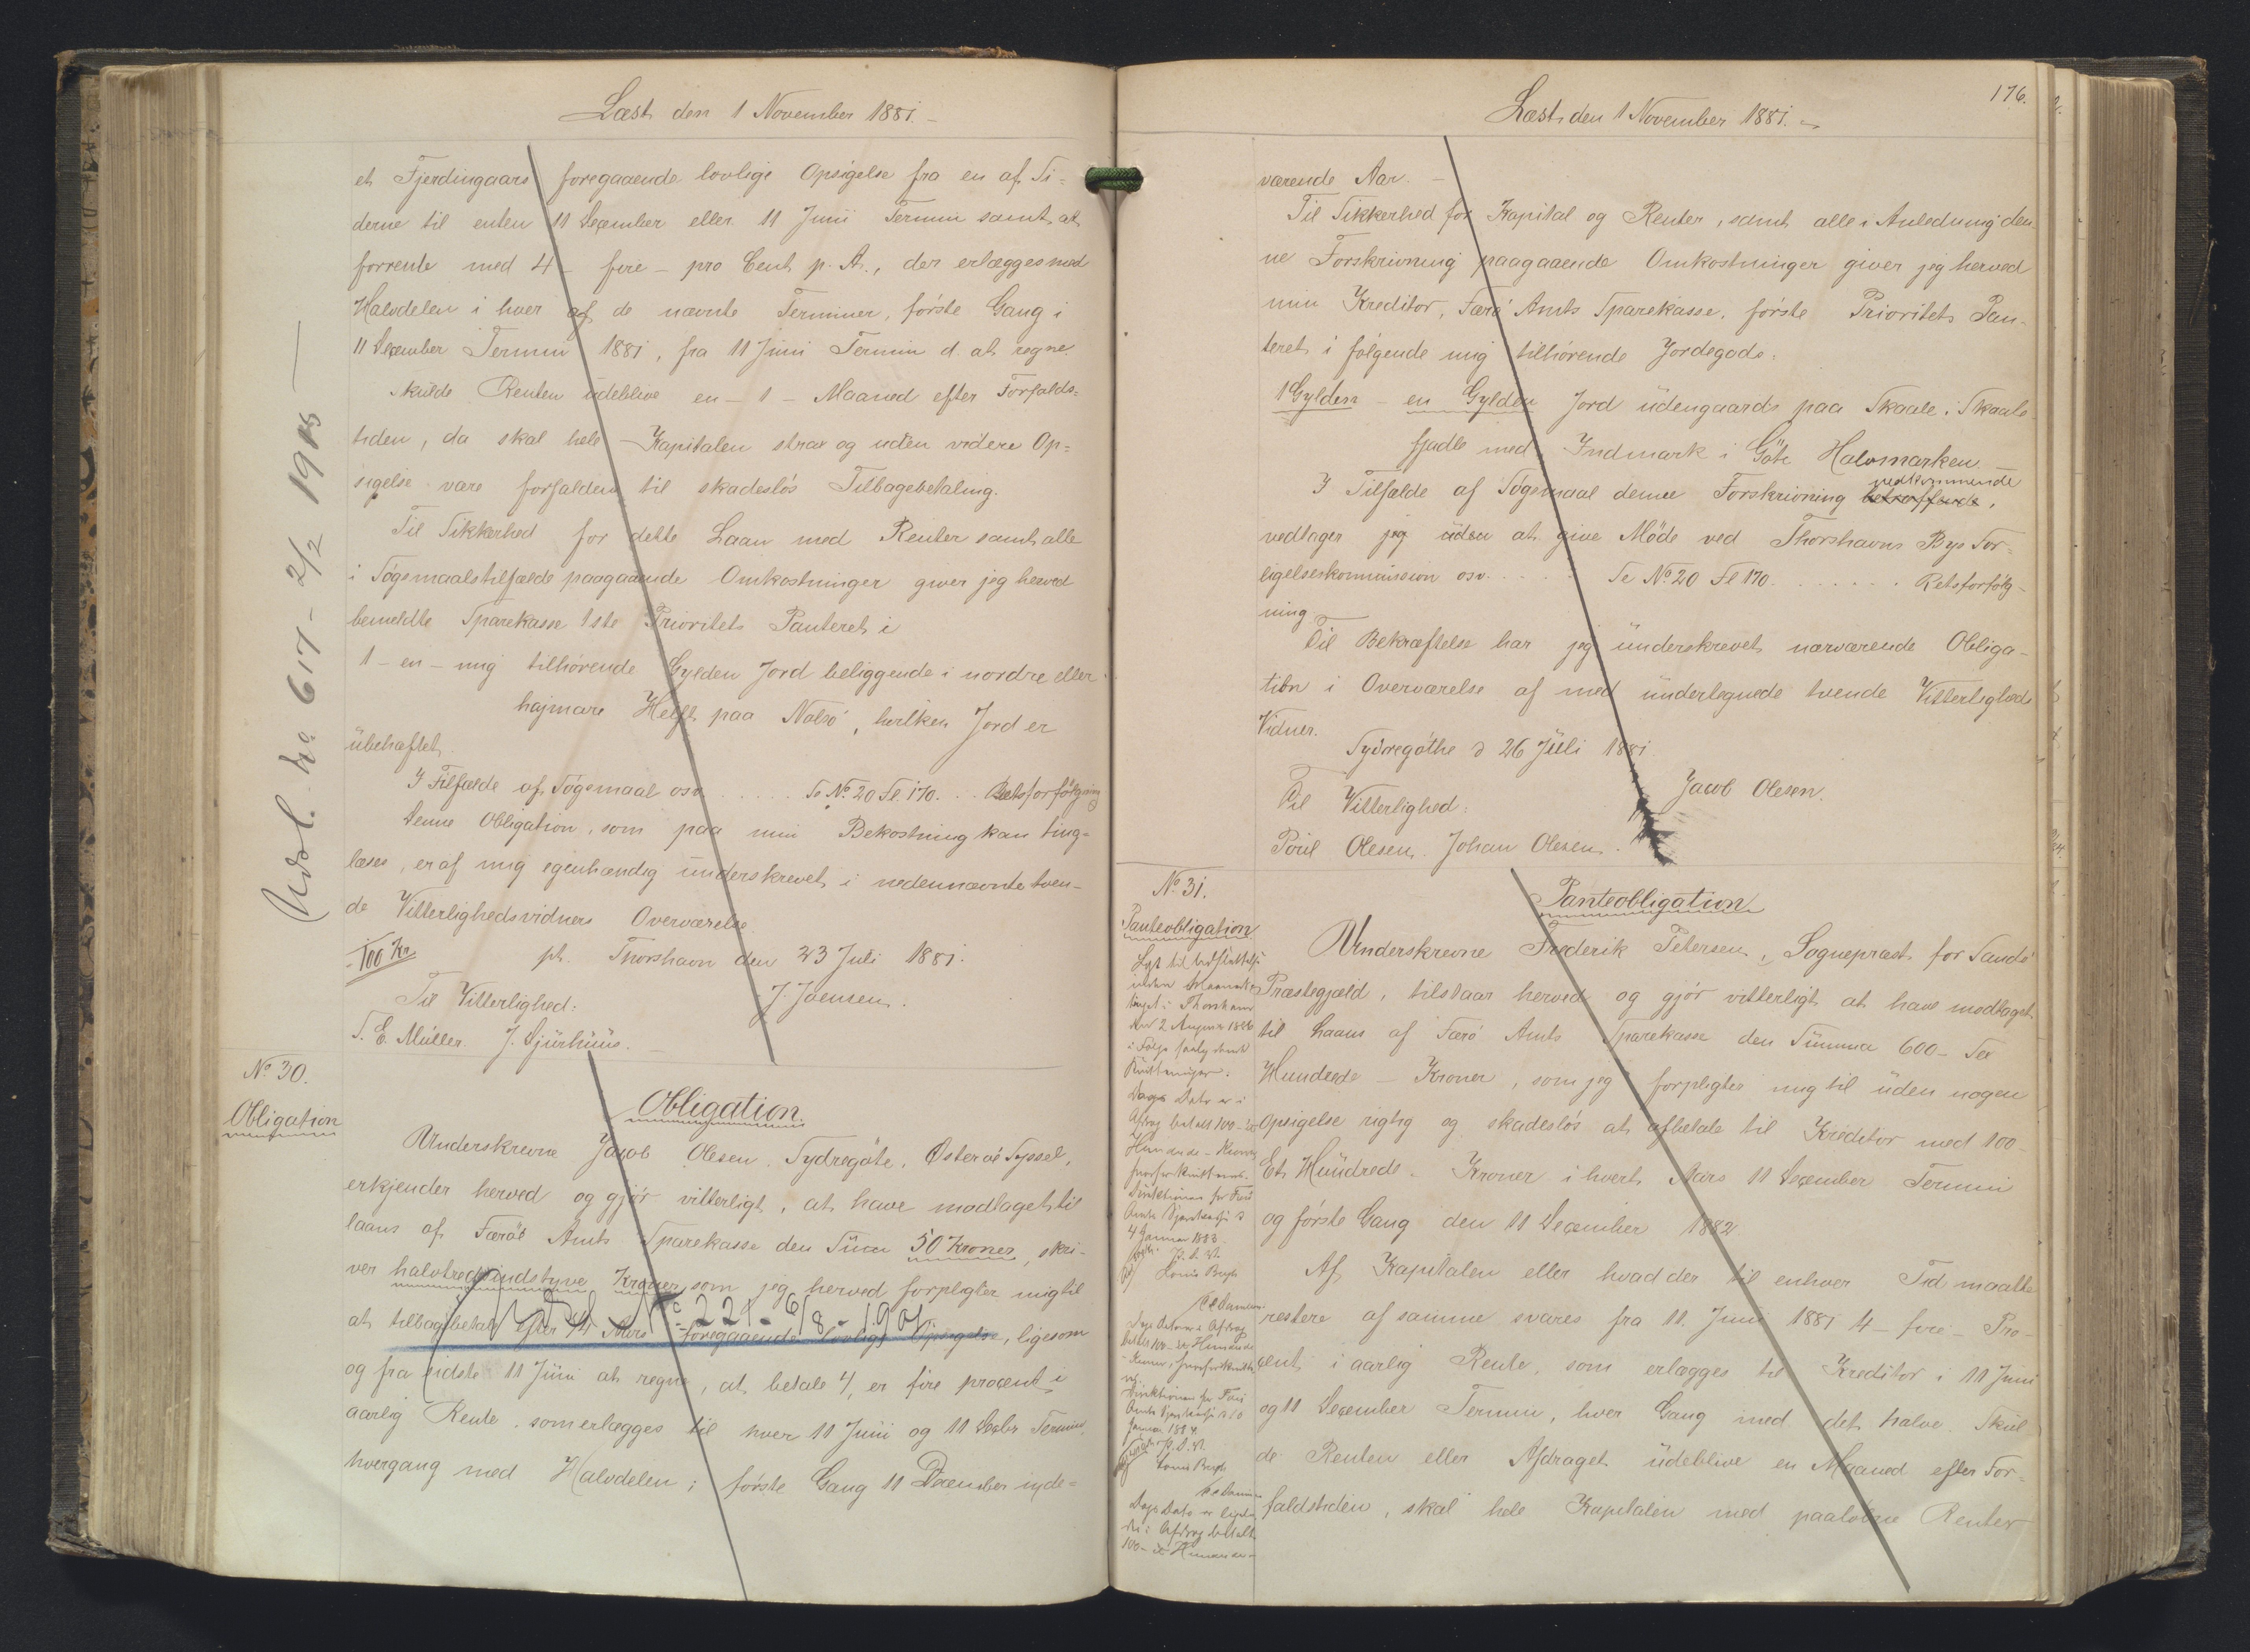 Læst den 1 November 1881. –
et Fjerdingaars foregaaende lovlige Opsigelse fra en af Si=
derne til enten 11 December eller 11 Juni Termin samt at
forrente med 4 – fire – pro Cent p. A., der erlægges med
Halvdelen i hver af de nævnte Terminer, første Gang i
11 December Termin 1881, fra 11 Juni Termin d. at regne.
Skulde Renten udeblive en – 1 – Maaned efter Forfalds=
tiden, da skal hele Kapitalen strax og uden videre Op=
sigelse være forfalden til skadesløs Tilbagebetaling.
Til Sikkerhed for dette Laan med Renter samt alle
i Søgsmaalstilfælde paagaaende Omkostninger giver jeg herved
bemeldte Sparekasse 1ste Prioritets Panteret i
1 – en – mig tilhørende Gylden Jord beliggende i nordre eller
hajmare Helft paa Nolsø, hvilken Jord er
ubehæftet.
I Tilfælde af Søgsmaal osv. . . . . . Se No. 20 Fl. 170. . . Retsforfølgning
Denne Obligation, som paa min Bekostning kan ting=
læses, er af mig egenhændig underskrevet i nedennævnte tven-
de Vitterlighedsvidners Overværelse
100 Kr. pt. Thorshavn den 23 Juli 1881.
Til Vitterlighed: J. Joensen.
S. E. Müller. J. Djurhuus. –
Udsl. No 617 – 2/2 1915
No. 30.
Obligation
Obligation.
Underskrevne Jacob Olesen, Sydregøte, Østerø Syssel,
erkjender herved og gjør vitterligt, at have modtaget til
laans af Færøe Amts Sparekasse den Sum 50 Kroner, skri-
ver halvtredsindstyve Kroner, som jeg herved forpligter mig til
Udsl. No. 221 - 6/8 - 1901
at tilbagebetale efter 1/4 Aars foregaaende lovligt Opsigelse, ligesom
og fra sidste 11 Juni at regne, at betale 4, er fire procent i
aarlig Rente, som erlægges til hver 11 Juni og 11 Decbr Termin,
hvergang med Halvdelen; første Gang 11 December inde=
176.
Læst den 1 November 1881. –
værende Aar. –
Til Sikkerhed for Kapital og Renter, samt alle i Anledning den
ne Forskrivning paagaaende Omkostninger giver jeg herved
min Kreditor, Færø Amts Sparekasse, første Prioritets Pan-
teret i følgende mig tilhørende Jordegods:
1 Gylden – en Gylden Jord udengaards paa Skaale, Skaale-
fjadle med Indmark i Gøte Halvmarken. –
I Tilfælde af Søgsmaal denne Forskrivning betræffende vedkommende,
vedtager jeg uden at give Møde ved Thorshavns Bys For=
ligelseskommission osv. . . . . Se No. 20 Fl 170. . . . . . . Retsforfølg-
ning
Til Bekræftelse har jeg underskrevet nærværende Obliga-
tion i Overværelse af med underlegnede tvende Vitterligheds
Vidner.
Sydregøthe d 26 Juli 1881
Til Vitterlighed: Jacob Olesen.
Poul Olesen. Johan Olesen.
No. 31.
Panteobligation
Lyst til Udslettelse
i Thorshavn
den 2 August 1886
i Følge
Kvitteringer.
Dags Dato er i
Afdrag betalt 100 –
Hundrede – Kroner,
hvorfor kvitteres.
Direktionen for Færø
Amts Sparekasse d
4 Januar 1883.
P. D. V.
Louis Bergh
Dags Dato er i Afdrag
betalt 100 – et Hundrede
– Kroner, hvorfor kvitte
Direktionen for Færø
Amts Sparekasse d 10
Januar 1884.
P. D. V.
Louis Bergh
Dags Dato er
i Afdrag betalt
100 – et Hundrede –
Panteobligation
Underskrevne Frederik Petersen, Sognepræst for Sandø
Præstegjæld, tilstaar herved og gjør vitterligt at have modtaget
til Laans af Færø Amts Sparekasse den Summa 600 – Sex
Hundrede – Kroner, som jeg forpligter mig til uden nogen
Opsigelse rigtig og skadesløs at afbetale til Kreditor med 100 –
Et Hundrede – Kroner i hvert Aars 11 December Termin
og første Gang den 11 December 1882
Af Kapitalen eller hvad der til enhver Tid maatte
restere af samme svares fra 11. Juni 1881 4 – fire – Pro-
cent i aarlig Rente, som erlægges til Kreditor i 11 Juni
og 11 December Termin, hver Gang med det halve. Skul
de Renten eller Afdraget udeblive en Maaned efter For=
faldstiden, skal hele Kapitalen med paaløbne Renter